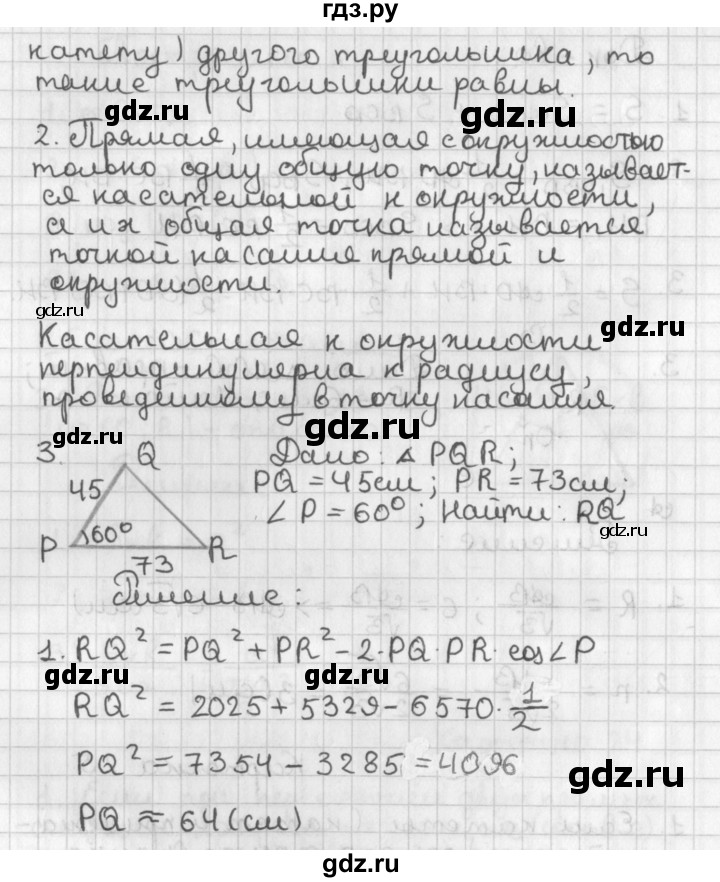 гдз.ру
катету) другого треугольника, то
такие треугольники равны.
gdz.ru
gdz.ru
2. Прямая, имеющая с окружностью
только одну общую точку, называет-
ся касательной к окружности,
gdz.ru
gdz.ru
а их общая точка называется
точкой касания прямой и
окружности.
gdz.ru
gdz.ru
Касательная к окружности
перпендикулярна к радиусу,
проведенному в точку касания.
gdz.ru
gdz.ru
3. Q Дано: △ PQR;
45 PQ = 45см; PR = 73см;
60° ∠P = 60°; Найти: RQ
P R
73
gdz.ru
gdz.ru
Решение:
1. RQ² = PQ² + PR² - 2·PQ·PR·cos∠P
gdz.ru
gdz.ru
RQ² = 2025 + 5329 - 6570·1/2
PQ² = 7354 - 3285 = 4096
gdz.ru
PQ ≈ 64 (см)
gdz.ru
gdz.ru